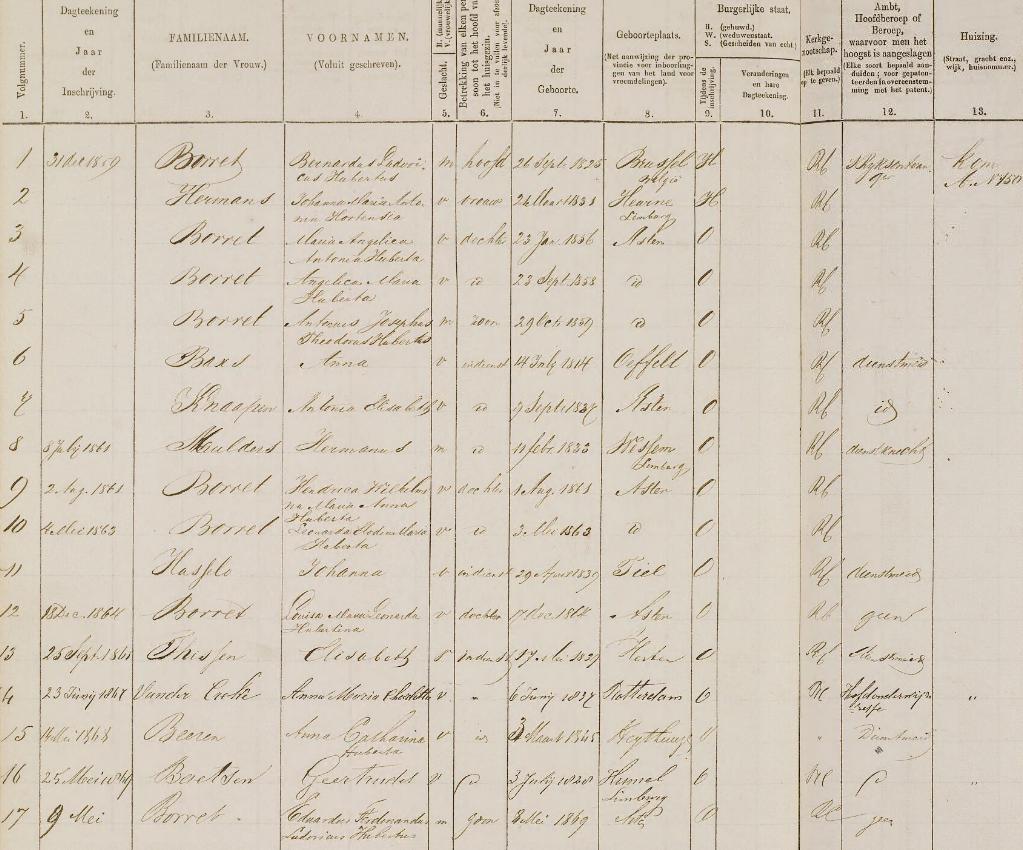 Volgnummer.
Dagteekening
en
Jaar
der
Inschrijving.
FAMILIENAAM.
(Familienaam der Vrouw.)
VOORNAMEN.
(Voluit geschreven).
Geslacht.
Dagteekening
en
Jaar
der
Geboorte.
Geboorteplaats.
(Met aanwijzing der pro-
vincie voor inboorlin-
gen van het land voor
vreemdelingen).
Burgerlijke staat.
H. (gehuwd.)
W. (weduwenstaat.
S. (Gescheiden van echt)
Tijdens de
inschrijving.
Veranderingen
en hare
Dagteekening.
Kerkge-
nootschap.
(Elk bepaald
op te geven.)
Ambt,
Hoofdberoep of
Beroep,
waarvoor men het
hoogst is aangeslagen
(Elke soort bepaald aan-
duiden; voor gepaten-
teerden in overeenstem-
ming met het patent.)
Huizing.
(Straat, gracht enz.,
wijk, huisnommer.)
1. 2. 3. 4. 5. 6. 7. 8. 9. 10. 11. 12. 13.
1 31 dec 1859 Borret Bernardus Ludovi- m hoofd 26 Sept. 1825 Brussel H RC
cus Hubertus Belgie
2 Hermans Johanna Maria Anto- v vrouw 26 Maart 1831 H RC
nia Hortensia Limburg
3 Borret Maria Angelica v dochter 23 Jan 1856 Asten O RC
Antonia Huberta
4 Borret Angelica Maria v id 23 Sept 1858 id O RC
Huberta
5 Borret Antonius Josephus m zoon 29 Oct 1859 id O RC
Theodorus Hubertus
6 Baxs Anna v indienst 14 July 1814 Oeffelt O RC dienstmeid
7 Knaapen Antonia Elisabeth v id 9 Sept 1837 Asten O RC id
8 8 July 1861 Mulders Hermanus m id 11 febr. 1833 Wessem O RC dienstknecht
Limburg
9 2 Aug. 1861 Borret Hendrica Wilhelmi- v dochter 1 Aug. 1861 Asten O RC
na Maria Anna
Huberta
10 4 Mei 1863 Borret Leonarda Maria v id 3 Mei 1863 id O RC
Huberta
11 Johanna v indienst 29 1839 Tiel O RC dienstmeid
12 18 Dec. 1864 Borret Louisa Maria Leonarda v dochter 17 Dec. 1864 Asten O RC geen
Hubertina
13 25 Sept. 1865 Thissen Elisabeth v indienst 17 Mei 1829 Horten O RC dienstmeid
14 23 Junij 1867 Anna Maria v " 6 Junij 1837 Rotterdam O RC "
15 Mei 1868 Beeren Anna Catharina v id 3 Maart 1845 O " Dienstmeid
Huberta
16 25 Mei 1869 Geertruda v id 3 Julij O RC id "
Limburg
17 9 Mei Borret Eduardus Ferdinandus m zoon 8 Mei 1869 O RC geen
Ludovicus Hubertus